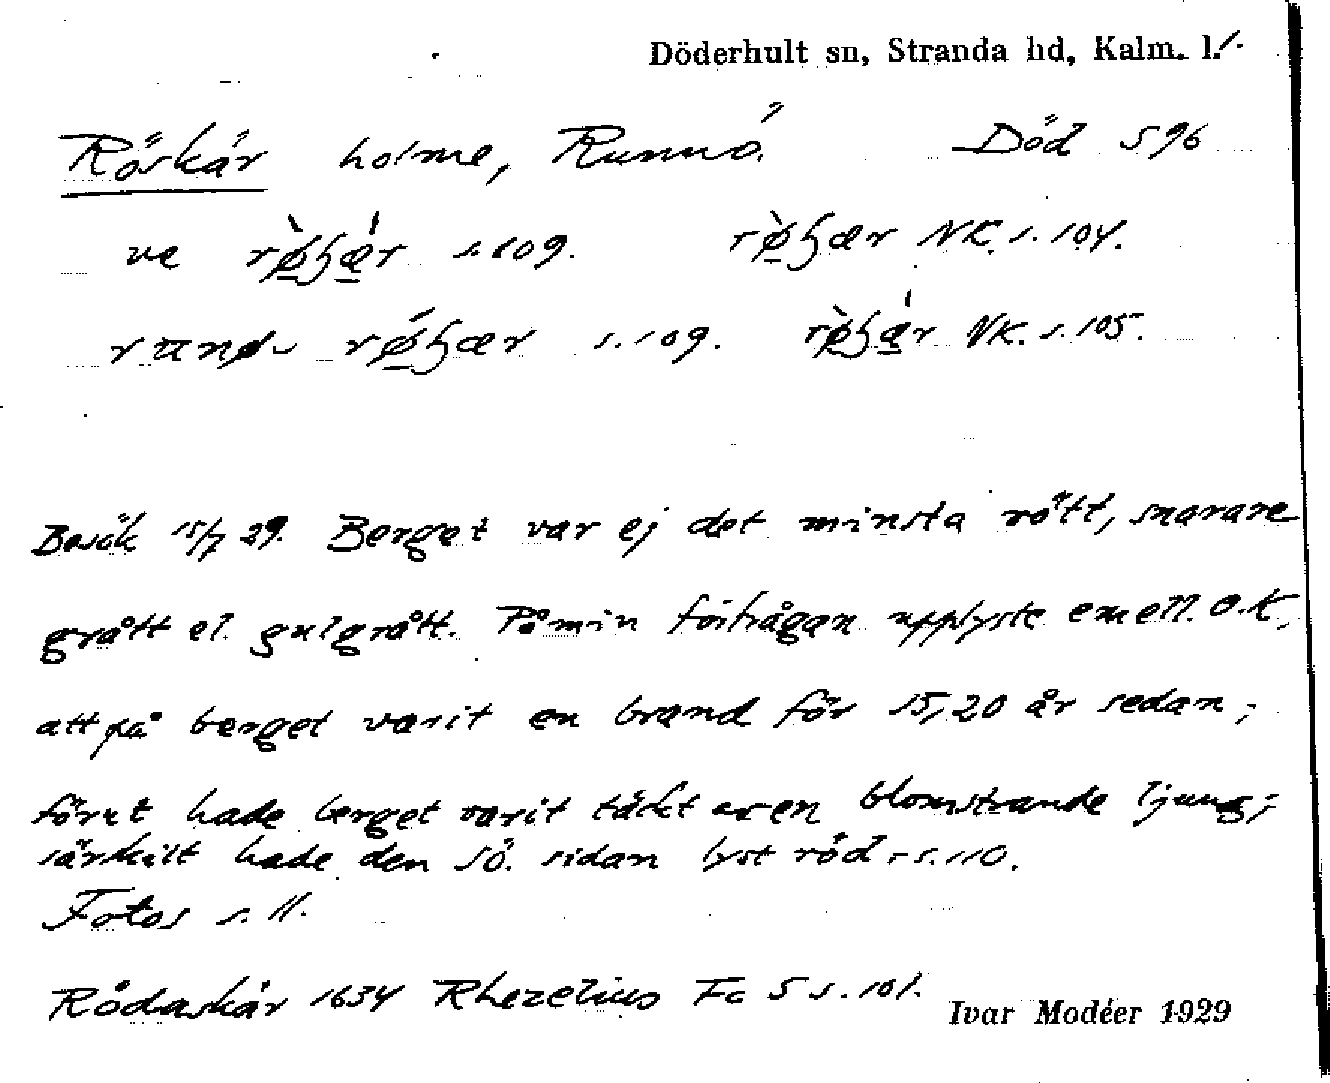 Döderhult sn, Stranda hd, Kalm. l.
Röskär holme, Runnö. Död 596
s. 109. NK. s. 104.
s. 109. NK. s. 105.
Besök 15/7 29. Berget var ej det minsta rött, snarare
grått el. gulgrått. På min förfrågan upplyste emell. O.K.,
att på berget varit en brand för 15, 20 år sedan;
förut hade berget varit täckt av en blomstrande ljung;
särskilt hade den sö. sidan lyst röd. - s. 110.
Fotos s. 11.
Rödaskär 1634 Rhezelius Fc 5 s. 101.
Ivar Modéer 1929